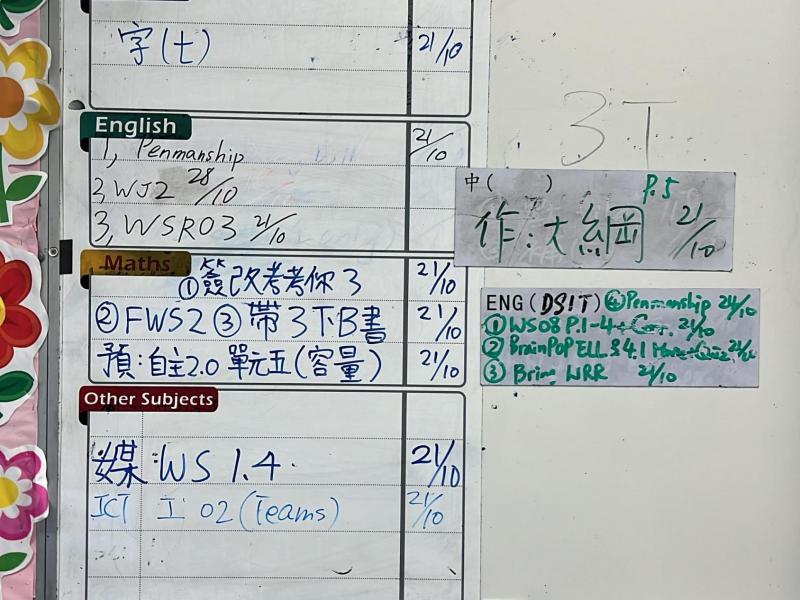 字(七) 21/10
English
1, Penmanship 21/10
2, WJ2 28/10
3, WSR03 21/10
Maths
①簽改考考你3 21/10
②FWS2 ③帶3下B書 21/10
預:自主2.0 單元五(容量) 21/10
Other Subjects
媒:WS 1.4 21/10
ICT 工 02 (Teams) 21/10
3T
中( ) P.5
作:大綱 21/10
ENG (DS1T) ④Penmanship 24/10
①WS08 P.1-4 + Corr. 21/10
②BrainPOP ELL 3.4.1
③Bring WRR 21/10